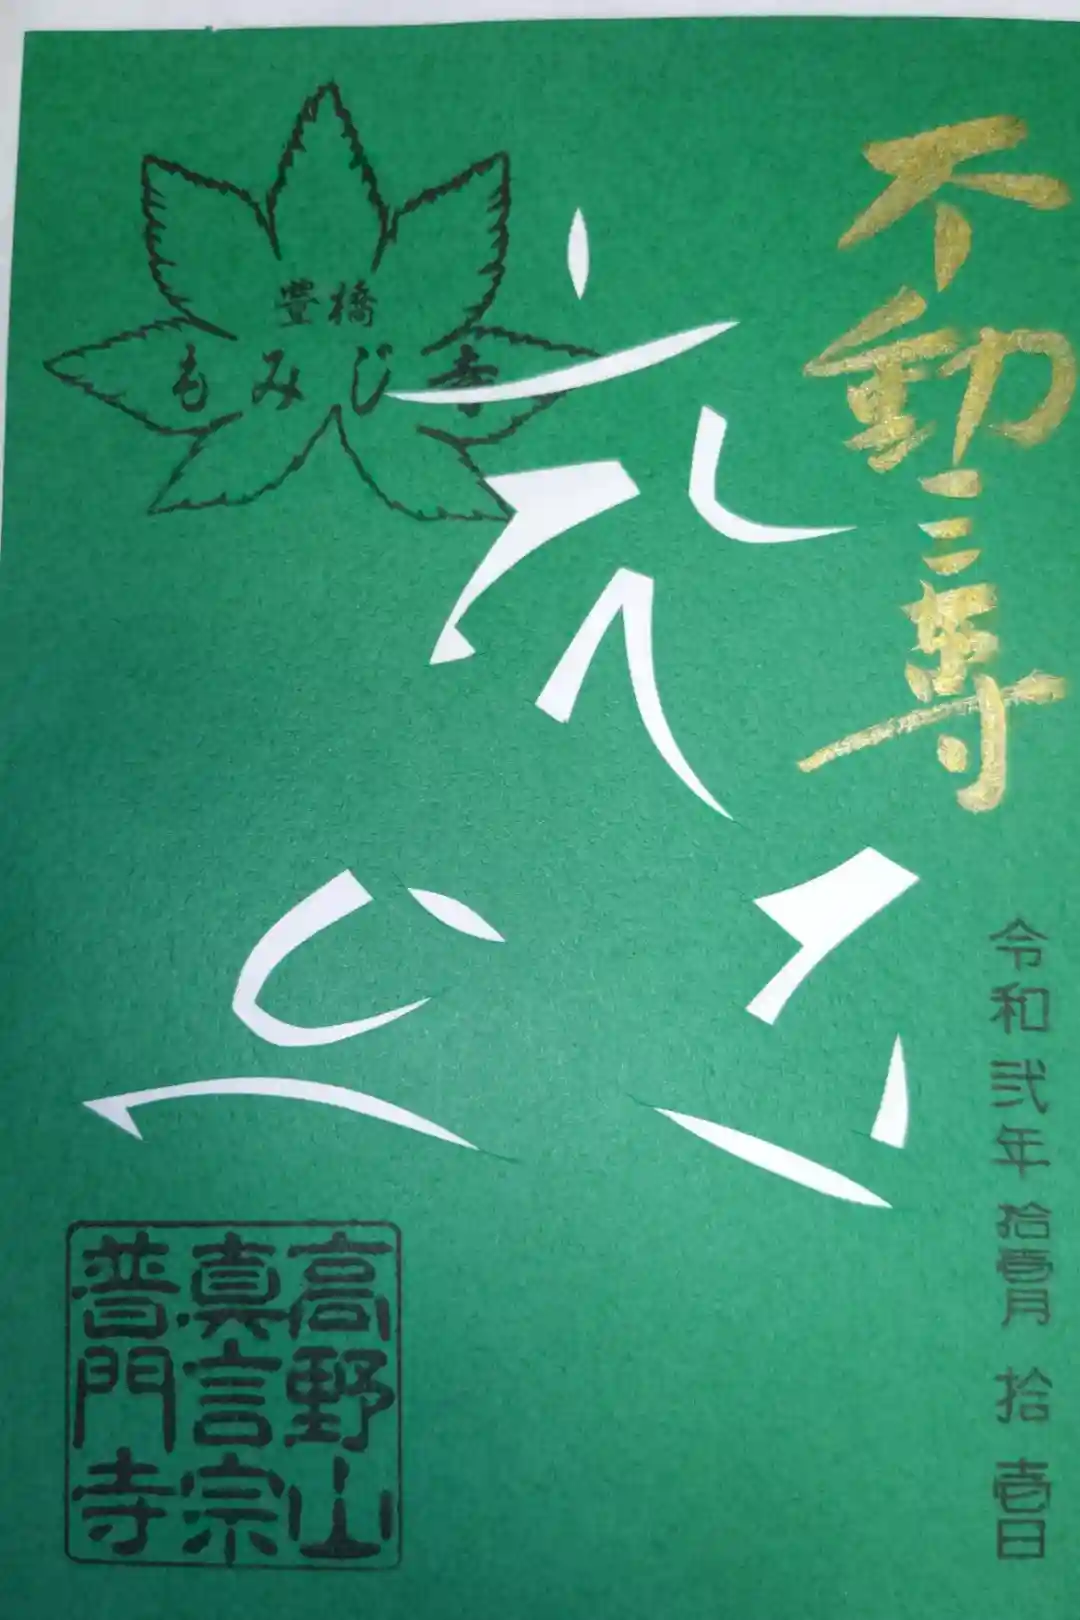 不動三尊
令和弐年拾壱月 拾壱日
豊橋
もみじ寺
高野山
真言宗
普門寺